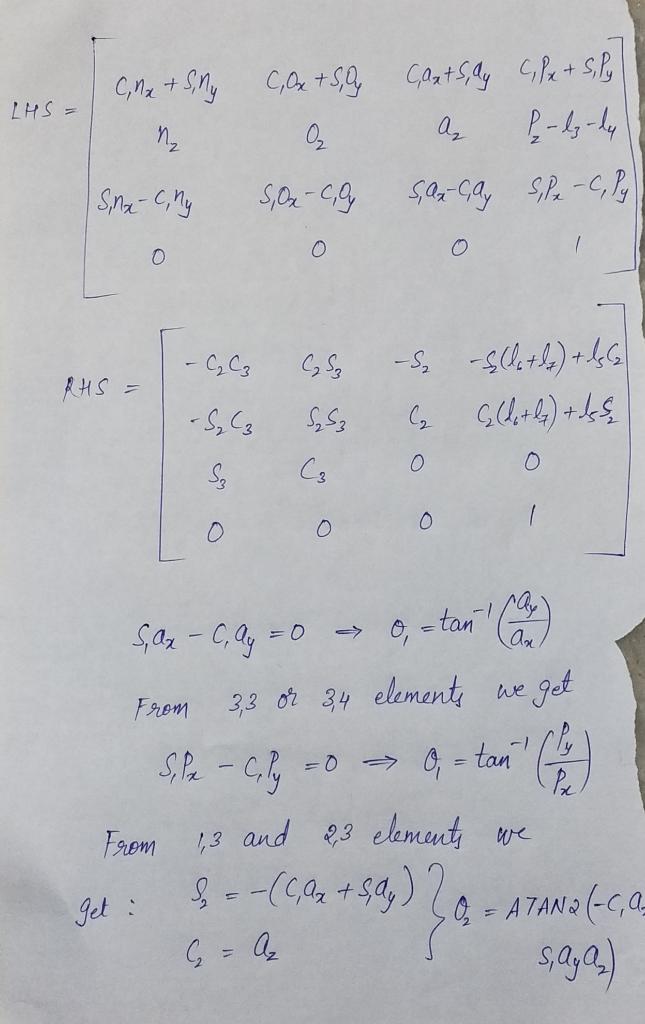 LHS = [ C₁nₓ + S₁n_y   C₁Oₓ + S₁O_y   C₁aₓ + S₁a_y   C₁Pₓ + S₁P_y
n_z   O_z   a_z   P_z - l₃ - l₄
S₁nₓ - C₁n_y   S₁Oₓ - C₁O_y   S₁aₓ - C₁a_y   S₁Pₓ - C₁P_y
0   0   0   1 ]
RHS = [ - C₂C₃   C₂S₃   -S₂   -S₂(l₆+l₇) + l₅C₂
-S₂C₃   S₂S₃   C₂   C₂(l₆+l₇) + l₅S₂
S₃   C₃   0   0
0   0   0   1 ]
S₁aₓ - C₁a_y = 0 ⇒ θ₁ = tan⁻¹(a_y/aₓ)
From 3,3 or 3,4 elements we get
S₁Pₓ - C₁P_y = 0 ⇒ θ₁ = tan⁻¹(P_y/Pₓ)
From 1,3 and 2,3 elements we
get : S₂ = -(C₁aₓ + S₁a_y) } θ₂ = ATAN2(-C₁a
C₂ = a_z   S₁a_y a_z)